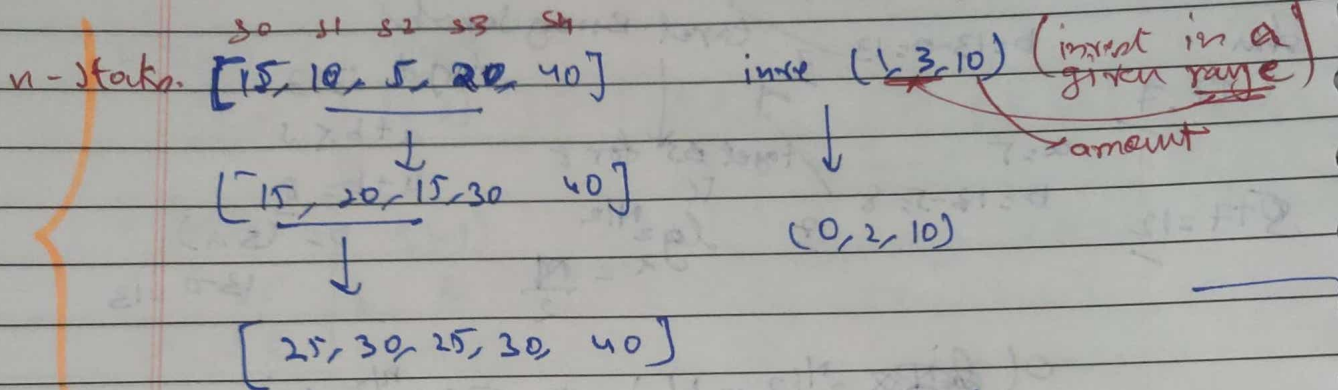 s0 s1 s2 s3 s4
n-stocks. [15, 10, 5, 20, 40] (1, 3, 10) (invest in a
given range)
amount
[15, 20, 15, 30 40]
(0, 2, 10)
[25, 30, 25, 30, 40]